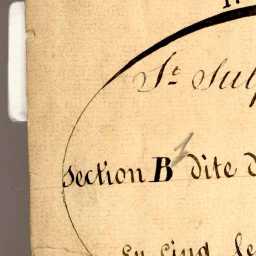 St Sulp
Section B 1 dite d
En Cinq fe